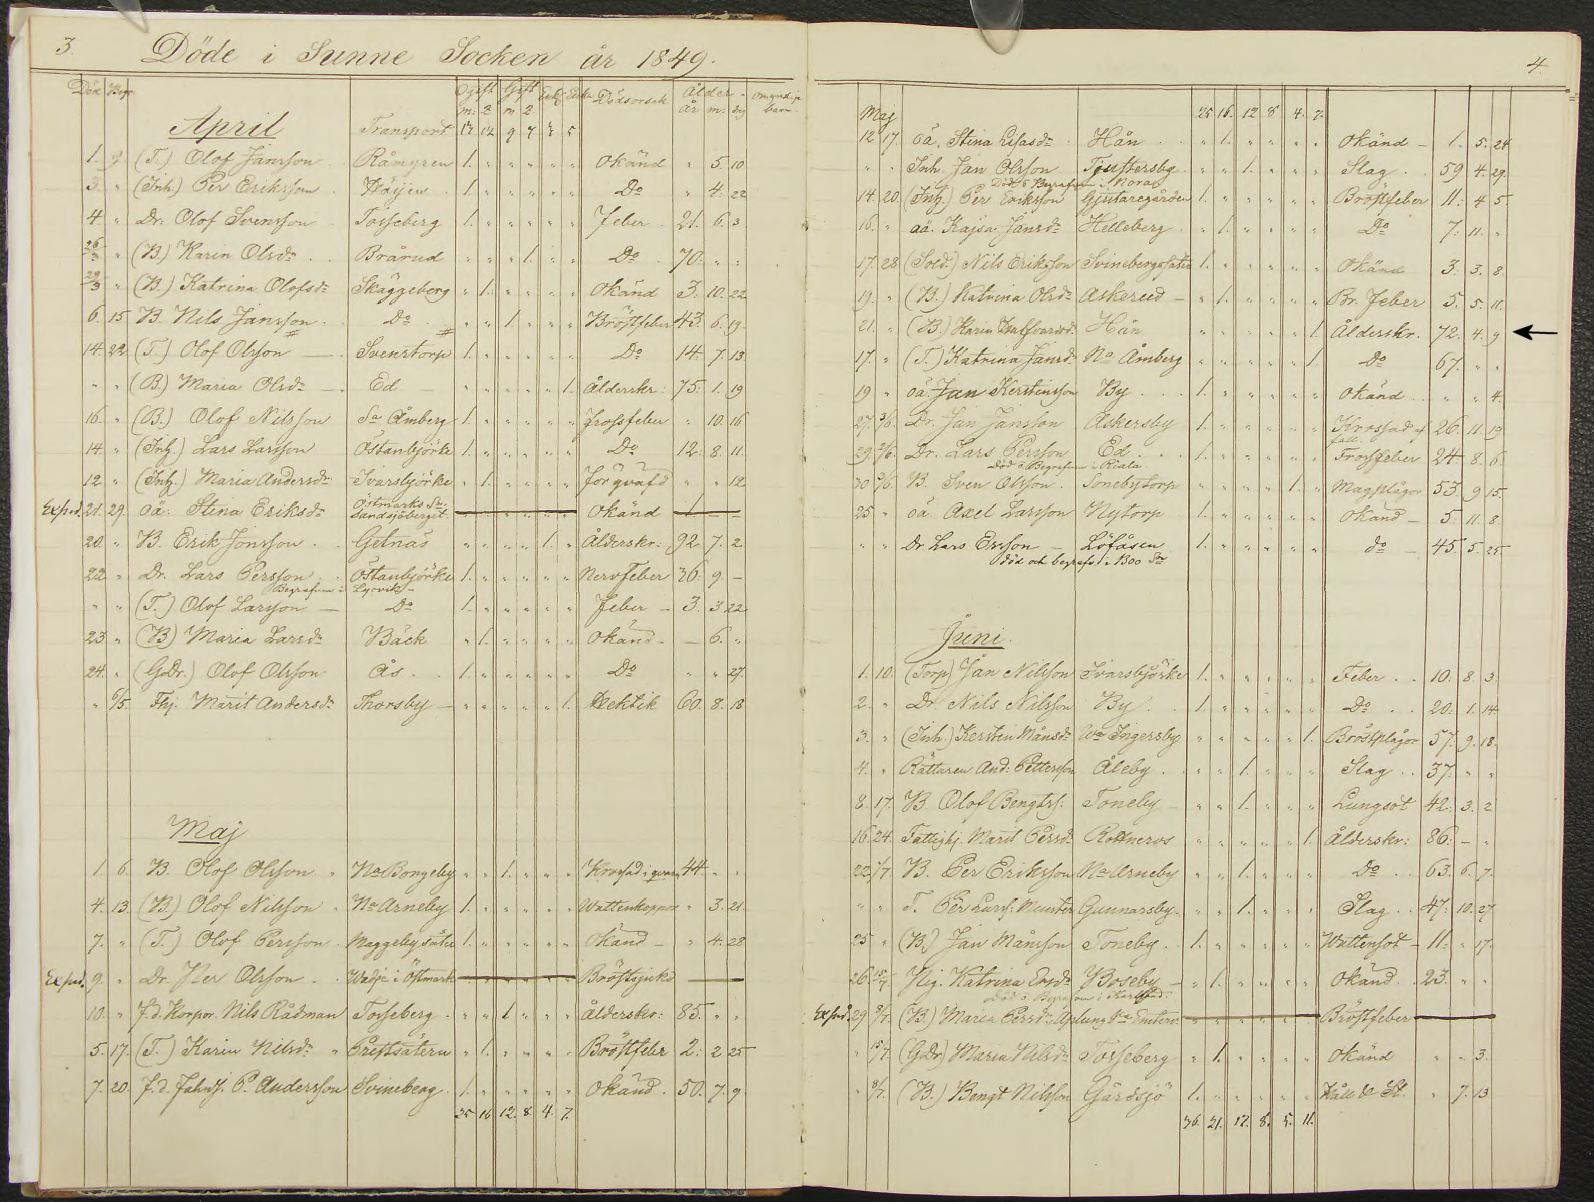 3.
Döde i Sunne Socken år 1849.
Död Begr. Ogift Gift Enkl. Enka Dödsorsak Ålder
m. 2 m 2. år m. dg barn.
April Transport 17 12 9 7 3 5
1. 9. (T.) Olof Jansson Råmyren 1. " " " " " Okänd " 5. 10
3. " (Inh.) Per Eriksson 1. " " " " " Do " 4. 22
4. " Dr. Olof Svensson Tosseberg 1. " " " " " Feber 21. 6. 3
26/3 " (B.) Karin Olsdr Brårud " " " 1. " " Do 70. " "
29/3 " (B.) Katrina Olofsdr Skäggeberg " 1. " " " " Okänd 3. 10. 22
6. 15 B. Nils Jansson Do " " 1. " " " Bröstfeber 43. 6. 19.
14. 22 (T.) Olof Olsson — Svenstorp 1. " " " " " Do 14. 7. 13
" " (B.) Maria Olsdr — Ed — " " " " " 1. Ålderskr: 75. 1. 19
16. " (B.) Olof Nilsson Sa Åmberg 1. " " " " " Frossfeber " 10. 16
14. " (Inh.) Lars Larsson Östanbjörke 1. " " " " " Do 12. 8. 11.
12 " (Inh.) Maria Andersdr Ivarsbjörke " 1. " " " " Förqvafd " " 12
Exped. 21. 29. oä: Stina Eriksdr Östmarks Sn: Okänd 1 — —
20 " B. Erik Jonsson Getnäs " " " " 1. " Ålderskr: 92 7. 2.
22 " Dr. Lars Persson Östanbjörke 1. " " " " " Nervfeber 36. 9. —
Begrafven i Lysvik —
" " (T.) Olof Larsson — Do 1. " " " " " Feber — 3. 3 22
23 " (B) Maria Larsdr Bäck " 1. " " " " Okänd — 6. "
24. " (GDr.) Olof Olsson Ås 1. " " " " " Do " " 27.
" 6/5. Fhj. Marit Andersdr Thorsby — " " " " " 1. Hektik 60. 8. 18
Maj
1. 6. B. Olof Olsson " Na Bongeby " " 1. " " " Krossad i qvarn 44 " "
4. 13. (B.) Olof Nilsson " Na Arneby 1. " " " " " Wattenkoppor " 3. 21
7. " (T.) Olof Persson Maggeby säter 1. " " " " " Okänd — " 4. 28
Exped. 9. " Dr Per Olsson Wadje i Östmark Bröstsjukd
10. " f.d. Korpor. Nils Rådman Tosseberg " " 1 " " " Ålderskr: 85. " "
5. 17. (T.) Karin Nilsdr Prestsätern " 1. " " " " Bröstfeber 2: 2 25
7. 20. f.d. Fahnj. P. Andersson Svineberg 1. " " " " " Okänd. 50. 7. 9.
25 16 12. 8. 4. 7.
4.
Maj 25 16. 12 8. 4. 7.
12 17. oä. Stina Lisasdr Hån " 1. " " " " Okänd — 1. 5. 24
" " Inh. Jan Olsson " " 1. " " " Slag 59 4. 29.
Död o Begrafven i Nora
14. 20. (Inh.) Per Eriksson Gjutaregården 1. " " " " " Bröstfeber 11: 4 5.
16. " oä. Kajsa Jansdr Helleberg " 1. " " " " Do 7: 11. "
17. 28 (Sold.) Nils Eriksson Svinebergssäter 1. " " " " " Okänd 3. 3. 8
19. " (B.) Katrina Olsdr Askerud — " 1. " " " " Br. Feber 5. 5. 11.
21. " (B.) Karin Hån " " " " " 1. Ålderskr. 72. 4. 9
17. " (T.) Katrina Jansdr Na Åmberg " " " " " 1. Do 67. " "
19 " oä. Jan Kerstinsson By 1. " " " " " Okänd " " 4.
27. 3/6. Dr. Jan Jansson Askersby 1. " " " " " Krossad af fall. 26. 11. 19
29 2/6. Dr. Lars Persson Ed 1. " " " " " Frossfeber 24. 8. 6.
Död o Begrafven i Riala.
30 3/6. B. Sven Olsson Sonebytorp " " " " 1. " Magplågor 53. 9 15.
25 " oä. Axel Larsson Nytorp 1. " " " " " Okänd — 5. 11. 8.
" " Dr. Lars Ersson — Löfåsen 1. " " " " " do — 45 5. 25
död och begrafv. i Boo Sn
Juni
1. 10. (Torp) Jan Nilsson Ivarsbjörke 1. " " " " " Feber 10. 8 3.
2. " Dr. Nils Nilsson By 1. " " " " " Do 20. 1. 14.
3. " (Inh.) Kerstin Månsdr Wa Ingersby " " " " " 1. Bröstplågor 57. 9. 18.
4. " Rättaren And: Pettersson Åleby " " 1. " " " Slag 37. " "
8. 17. B. Olof Bengts: Toneby — " " 1. " " " Lungsot 42. 3. 2
16 24. Fattighj. Marit Persdr Rottneros " " " " " 1. Ålderskr: 86. — "
22. 1/7 B. Per Eriksson Na Arneby " " 1. " " " Do 63. 6. 7.
" " T. Per Lars: Munter Gunnarsby. " " 1. " " " Slag 47: 10. 27
25 " (B.) Jan Månsson Toneby 1. " " " " " Wattensot — 11. " 17.
26 15/7 Pig. Katrina Ersdr Boseby — " 1. " " " " Okänd 23. " "
Död o Begrafven i Karlstad.
Exped. 29 8/7. (B.) Maria Persdr: Bröstfeber
" 15/7. (GDr) Maria Nilsdr Tosseberg " 1. " " " " Okänd " " 3.
" 8/7. (B.) Bengt Nilsson Gårdsjö 1. " " " " " " 7. 13
36. 21. 17. 8. 5. 11.